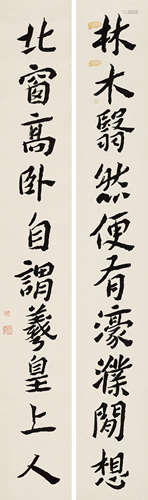 林木翳然便有濠濮閒想
北窗高卧自謂羲皇上人